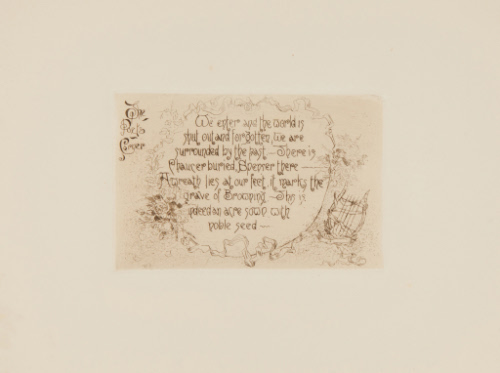 The
Poets
Corner
We enter and the world is
shut out and forgotten, we are
surrounded by the past — There is
Chaucer buried, Spenser there —
A wreath lies at our feet, it marks the
grave of Browning — This is
indeed an acre sown with
noble seed —